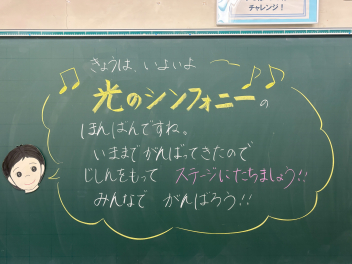 チャレンジ！
きょうは、いよいよ
光のシンフォニーの
ほんばんですね。
いままでがんばってきたので
じしんをもって ステージにたちましょう!!
みんなで がんばろう!!